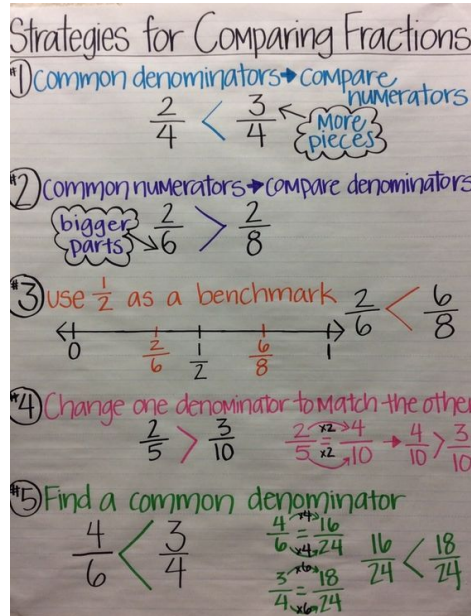 Strategies for Comparing Fractions
#1 Common denominators → compare
numerators
2/4 < 3/4 ← More
pieces
#2 Common numerators → compare denominators
bigger
parts → 2/6 > 2/8
#3 Use 1/2 as a benchmark 2/6 < 6/8
0 2/6 1/2 6/8 1
#4 Change one denominator to match the other
2/5 > 3/10 2/5 x2 = x2 4/10 → 4/10 > 3/10
#5 Find a common denominator
4/6 < 3/4
4/6 x4 = x4 16/24
3/4 x6 = x6 18/24
16/24 < 18/24